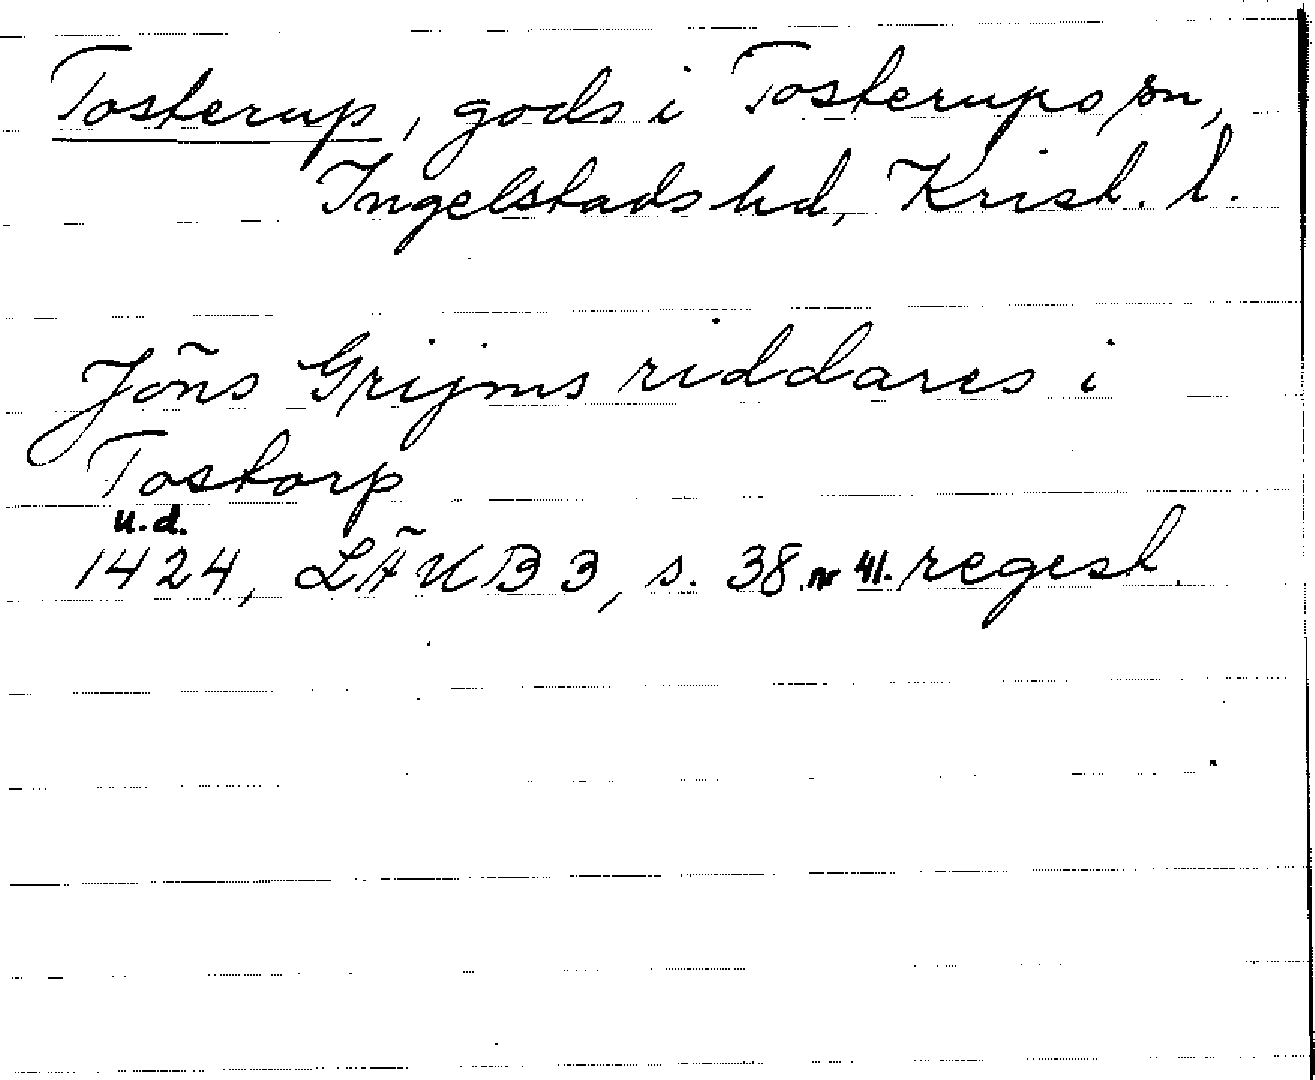 Tosterup, gods i Tosterups sn,
Ingelstads hd, Krist. l.
Jöns Grijms riddares i
Tostorp
u.d.
1424, LÄUB 3, s. 38. nr 41. regest.